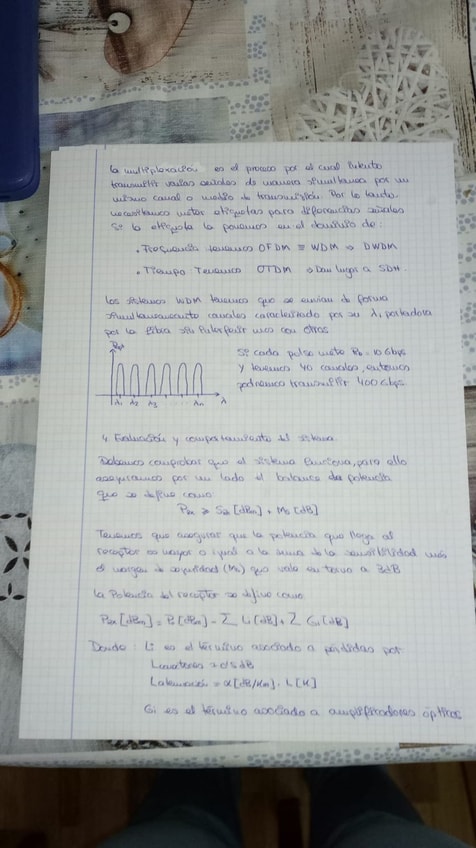 La multiplexación es el proceso por el cual intento
transmitir varias señales de manera simultanea por un
mismo canal o medio de transmisión. Por lo tanto,
necesitamos meter etiquetas para diferenciar señales
Si la etiqueta la ponemos en el dominio de:
· Frecuencia tenemos OFDM ≡ WDM ⇒ DWDM
· Tiempo Tenemos OTDM ⇒ Dan lugar a SDH.
Los sistemas WDM tenemos que se envían de forma
simultaneamente canales caracterizado por su λ, portadora
por la fibra sin interferir unos con otros
Si cada pulso mete Rb = 10 Gbps
y tenemos 40 canales, entonces
podremos transmitir 400 Gbps.
λ1 λ2 λ3 ... λn λ
4. Evaluación y comportamiento del sistema.
Debemos comprobar que el sistema funciona, para ello
aseguramos por un lado el balance de potencia
que se define como
≥ [dBm] + Ms [dB]
Tenemos que asegurar que la potencia que llega al
receptor es mayor o igual a la suma de la sensibilidad más
el margen de seguridad (Ms) que vale en torno a 3dB
La Potencia del receptor se define como:
[dBm] = [dBm] - Σ Li [dB] + Σ Gi [dB]
Donde: Li es el término asociado a pérdidas por:
Lconectores = 0'5 dB
Latenuación = α [dB/km] · L [K]
Gi es el término asociado a amplificadores ópticos